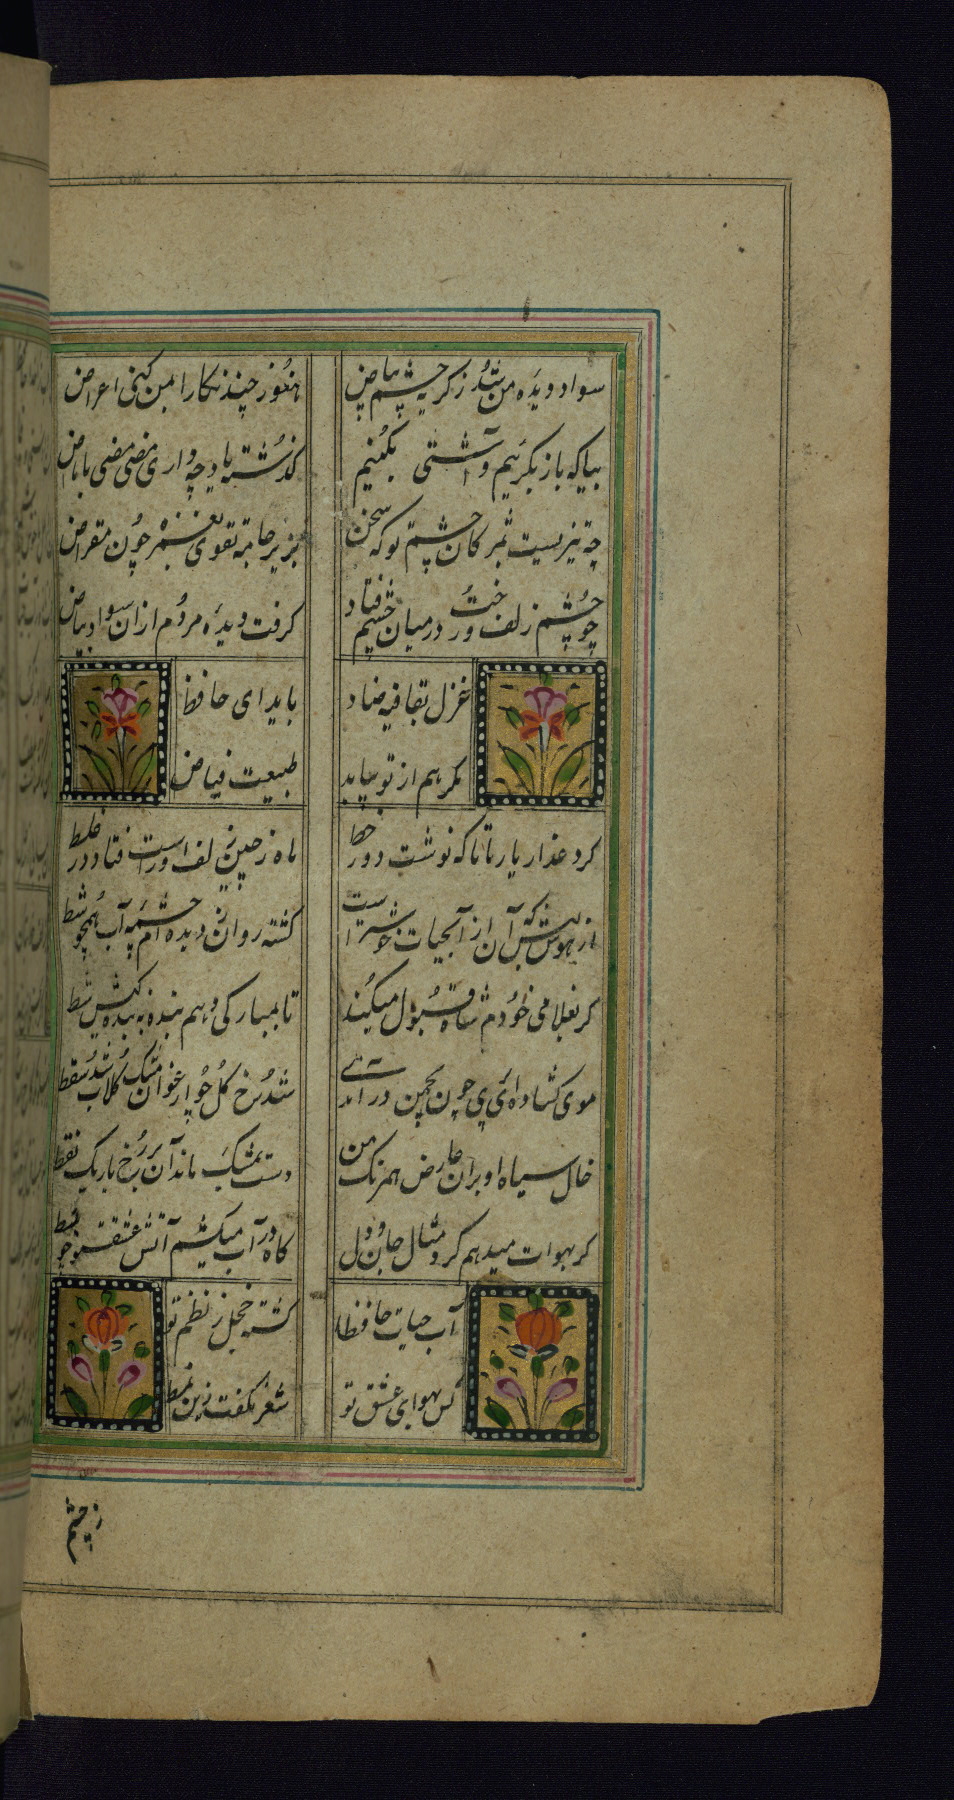 سواد دیده من شد ز کریه چشم بیاض
هنوز چند نکارا بمن کنی اعراض
بیا که باز بکرییم و آشتی بکنیم
کذشته یاد چه داری مضی مضی باماض
چه تیز نیست مژکان چشم تو که سخن
بزیر جامه تقوی بغمزه چون مقراض
چو چشم زلف و رخت در میان خشم فتاد
کرفت دیده مردم ازان سواد بیاض
غزل بقافیه ضاد
باید ای حافظ
مکر هم از تو بیاید
طبیعت فیاض
کرد عذار یار ما تا که نوشت دور خط
ماه ز حسن زلف او راست فتاد در غلط
از هوش لبش که آن از آبحیات خوشتر است
کشته روان ز دیده ام چشمه آب همچو شط
کر بغلامی خودم شاه قبول میکند
تا بمبارکی دهم بنده به بنده کیش خط
موی کشاده ای پی چون بچمن در آمدی
شد رخ کل چو ارغوان مشک کلاب شد سقط
خال سیاه او بران عارض همرنک من
دست بمشک ماند آن بر رخ باریک نقط
کر بهوات میدهم کرد مثال جان و دل
کاه در آب میکشم آتش عشقت چو بط
آب حیات حافظا
کشته خجل ز نظم تو
کس بهوای عشق تو
شعر نکفت زین نمط
ز چشم